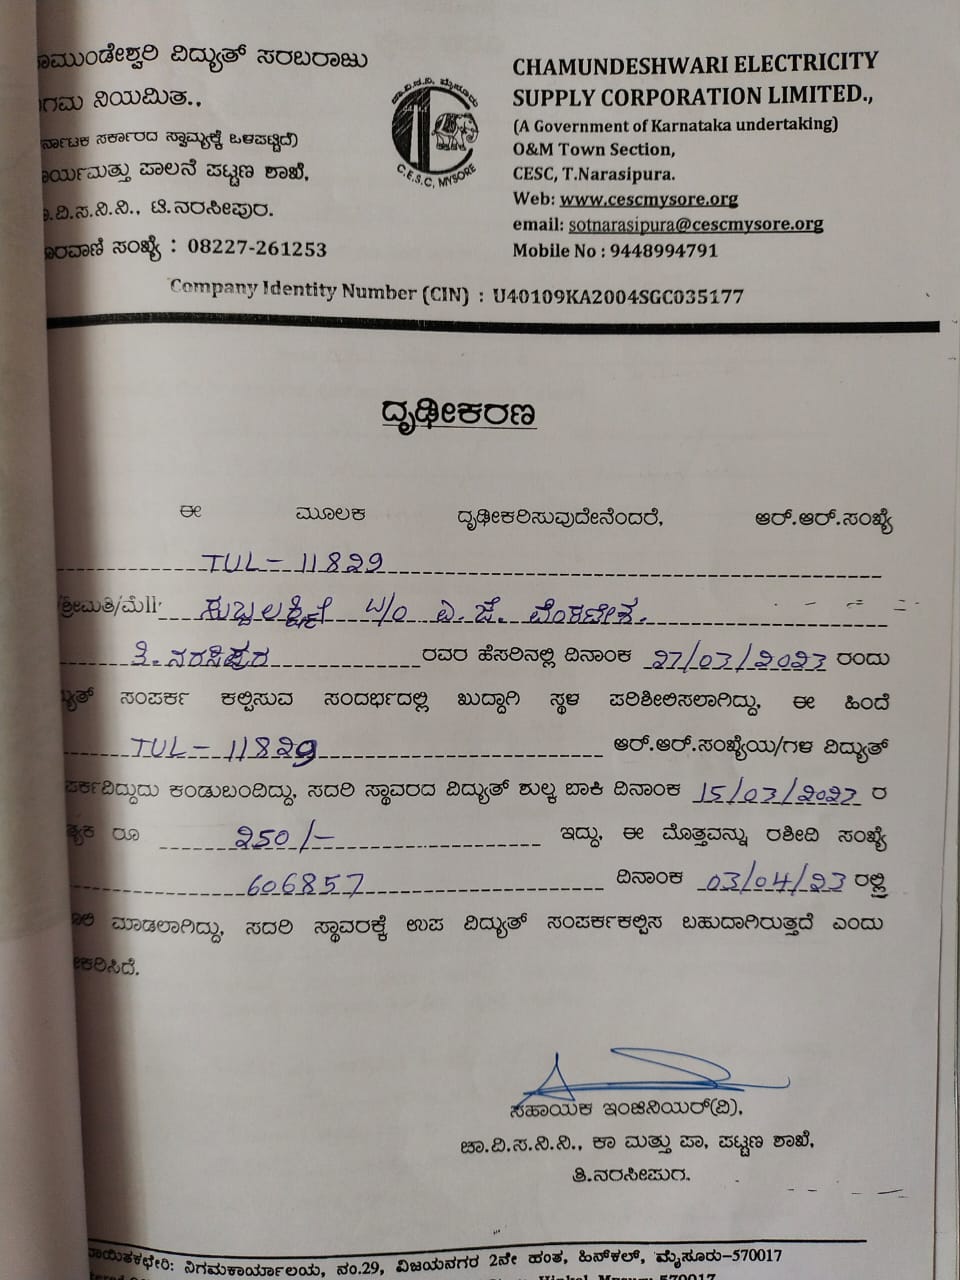 ಾಮುಂಡೇಶ್ವರಿ ವಿದ್ಯುತ್ ಸರಬರಾಜು
ಿಗಮ ನಿಯಮಿತ.,
ರ್ನಾಟಕ ಸರ್ಕಾರದ ಸ್ವಾಮ್ಯಕ್ಕೆ ಒಳಪಟ್ಟಿದೆ)
ಾರ್ಯಮತ್ತು ಪಾಲನೆ ಪಟ್ಟಣ ಶಾಖೆ,
ಾ.ವಿ.ಸ.ನಿ.ನಿ., ಟಿ.ನರಸೀಪುರ.
ೂರವಾಣಿ ಸಂಖ್ಯೆ : 08227-261253
ಚಾ.ವಿ.ಸ.ನಿ, ಮೈಸೂರು
C.E.S.C, MYSORE
CHAMUNDESHWARI ELECTRICITY
SUPPLY CORPORATION LIMITED.,
(A Government of Karnataka undertaking)
O&M Town Section,
CESC, T.Narasipura.
Web: www.cescmysore.org
email: sotnarasipura@cescmysore.org
Mobile No : 9448994791
Company Identity Number (CIN) : U40109KA2004SGC035177
ದೃಢೀಕರಣ
ಈ ಮೂಲಕ ದೃಢೀಕರಿಸುವುದೇನೆಂದರೆ, ಆರ್.ಆರ್.ಸಂಖ್ಯೆ
TUL-11829
/ಶ್ರೀಮತಿ/ಮೆ|| ಸುಬ್ಬಲಕ್ಷ್ಮಿ W/O ಎ.ಜೆ. ವೆಂಕಟೇಶ.
ತಿ.ನರಸಿಪುರ ರವರ ಹೆಸರಿನಲ್ಲಿ ದಿನಾಂಕ 27/03/2023 ರಂದು
ದ್ಯುತ್ ಸಂಪರ್ಕ ಕಲ್ಪಿಸುವ ಸಂದರ್ಭದಲ್ಲಿ ಖುದ್ದಾಗಿ ಸ್ಥಳ ಪರಿಶೀಲಿಸಲಾಗಿದ್ದು, ಈ ಹಿಂದೆ
TUL-11829 ಆರ್.ಆರ್.ಸಂಖ್ಯೆಯ/ಗಳ ವಿದ್ಯುತ್
ಪರ್ಕವಿದ್ದುದು ಕಂಡುಬಂದಿದ್ದು, ಸದರಿ ಸ್ಥಾವರದ ವಿದ್ಯುತ್ ಶುಲ್ಕ ಬಾಕಿ ದಿನಾಂಕ 15/03/2023 ರ
ತ್ಯಕ ರೂ 250/- ಇದ್ದು, ಈ ಮೊತ್ತವನ್ನು ರಶೀದಿ ಸಂಖ್ಯೆ
606857 ದಿನಾಂಕ 03/04/23 ರಲ್ಲಿ
ಾಲಿ ಮಾಡಲಾಗಿದ್ದು, ಸದರಿ ಸ್ಥಾವರಕ್ಕೆ ಉಪ ವಿದ್ಯುತ್ ಸಂಪರ್ಕಕಲ್ಪಿಸ ಬಹುದಾಗಿರುತ್ತದೆ ಎಂದು
ೀಕರಿಸಿದೆ.
ಸಹಾಯಕ ಇಂಜಿನಿಯರ್(ವಿ),
ಚಾ.ವಿ.ಸ.ನಿ.ನಿ., ಕಾ ಮತ್ತು ಪಾ, ಪಟ್ಟಣ ಶಾಖೆ,
ತಿ.ನರಸೀಪುರ.
ಾಯಿತಕಛೇರಿ: ನಿಗಮಕಾರ್ಯಾಲಯ, ನಂ.29, ವಿಜಯನಗರ 2ನೇ ಹಂತ, ಹಿನ್‌ಕಲ್, ಮೈಸೂರು-570017